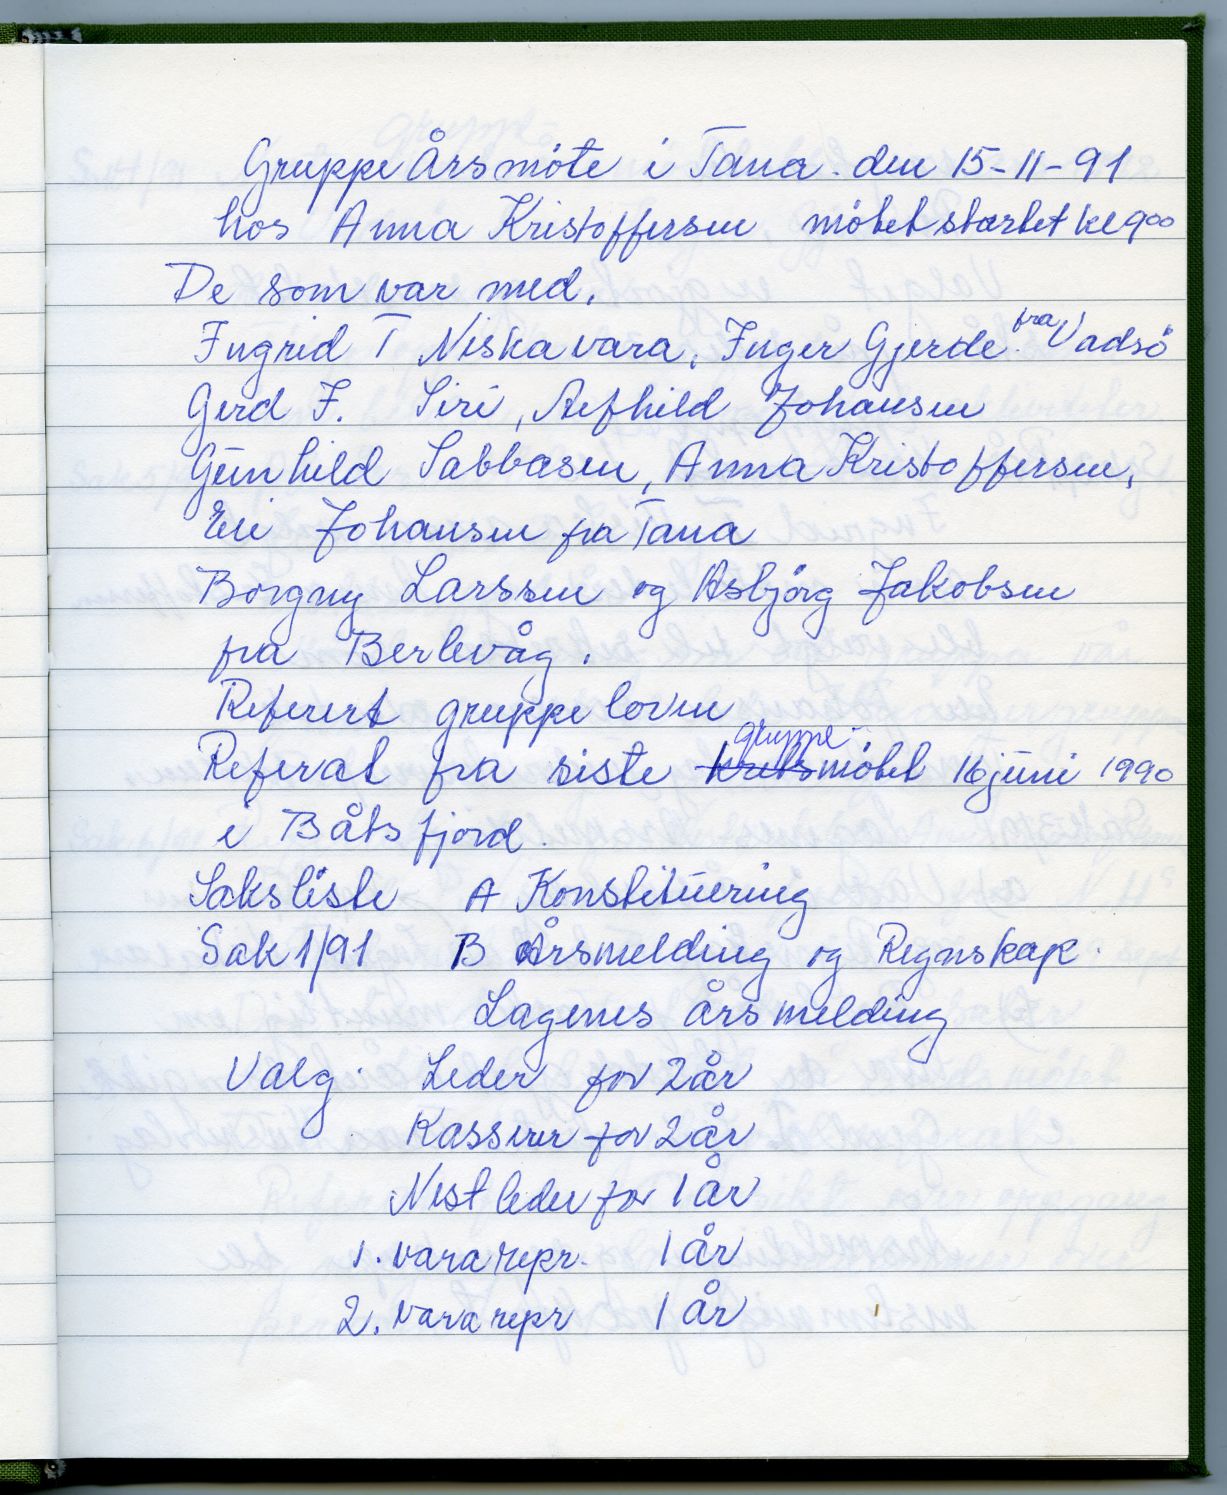 Gruppe Årsmöte i Tana. den 15-11-91
hos Anna Kristoffersen mötet startet kl 900
De som var med.
Ingrid T Niskavara, Inger Gjerde. fra Vadsö
Gerd I. Siri, Alfhild Johansen
Gunhild Sabbasen, Anna Kristoffersen,
Eli Johansen fra Tana
Borgny Larssen og Asbjörg Jakobsen
fra Berlevåg.
Referert gruppeloven
Referat fra siste kretsmötet gruppe- 16 juni 1990
i Båtsfjord.
Saksliste A Konstituering
Sak 1/91 B Årsmelding og Regnskap.
Lagenes årsmelding
Valg. Leder for 2 år
Kasserer for 2 år
Nestleder for 1 år
1. vararepr. 1 år
2. vararepr 1 år